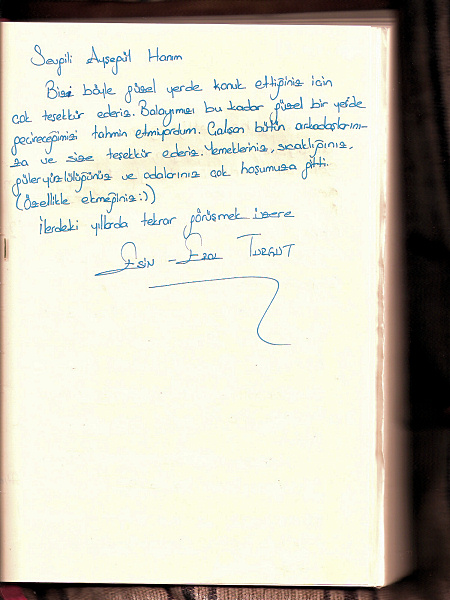 Sevgili Ayşegül Hanım
Bizi böyle güzel yerde konuk ettiğiniz için
çok teşekkür ederiz. Balayımızı bu kadar güzel bir yerde
geçireceğimizi tahmin etmiyordum. Çalışan bütün arkadaşlarını-
za ve size teşekkür ederiz. Yemekleriniz, sıcaklığınız,
güleryüzlülüğünüz ve odalarınız çok hoşumuza gitti.
(Özellikle ekmeğiniz:))
İlerdeki yıllarda tekrar görüşmek üzere
Esin - Erol TURGUT